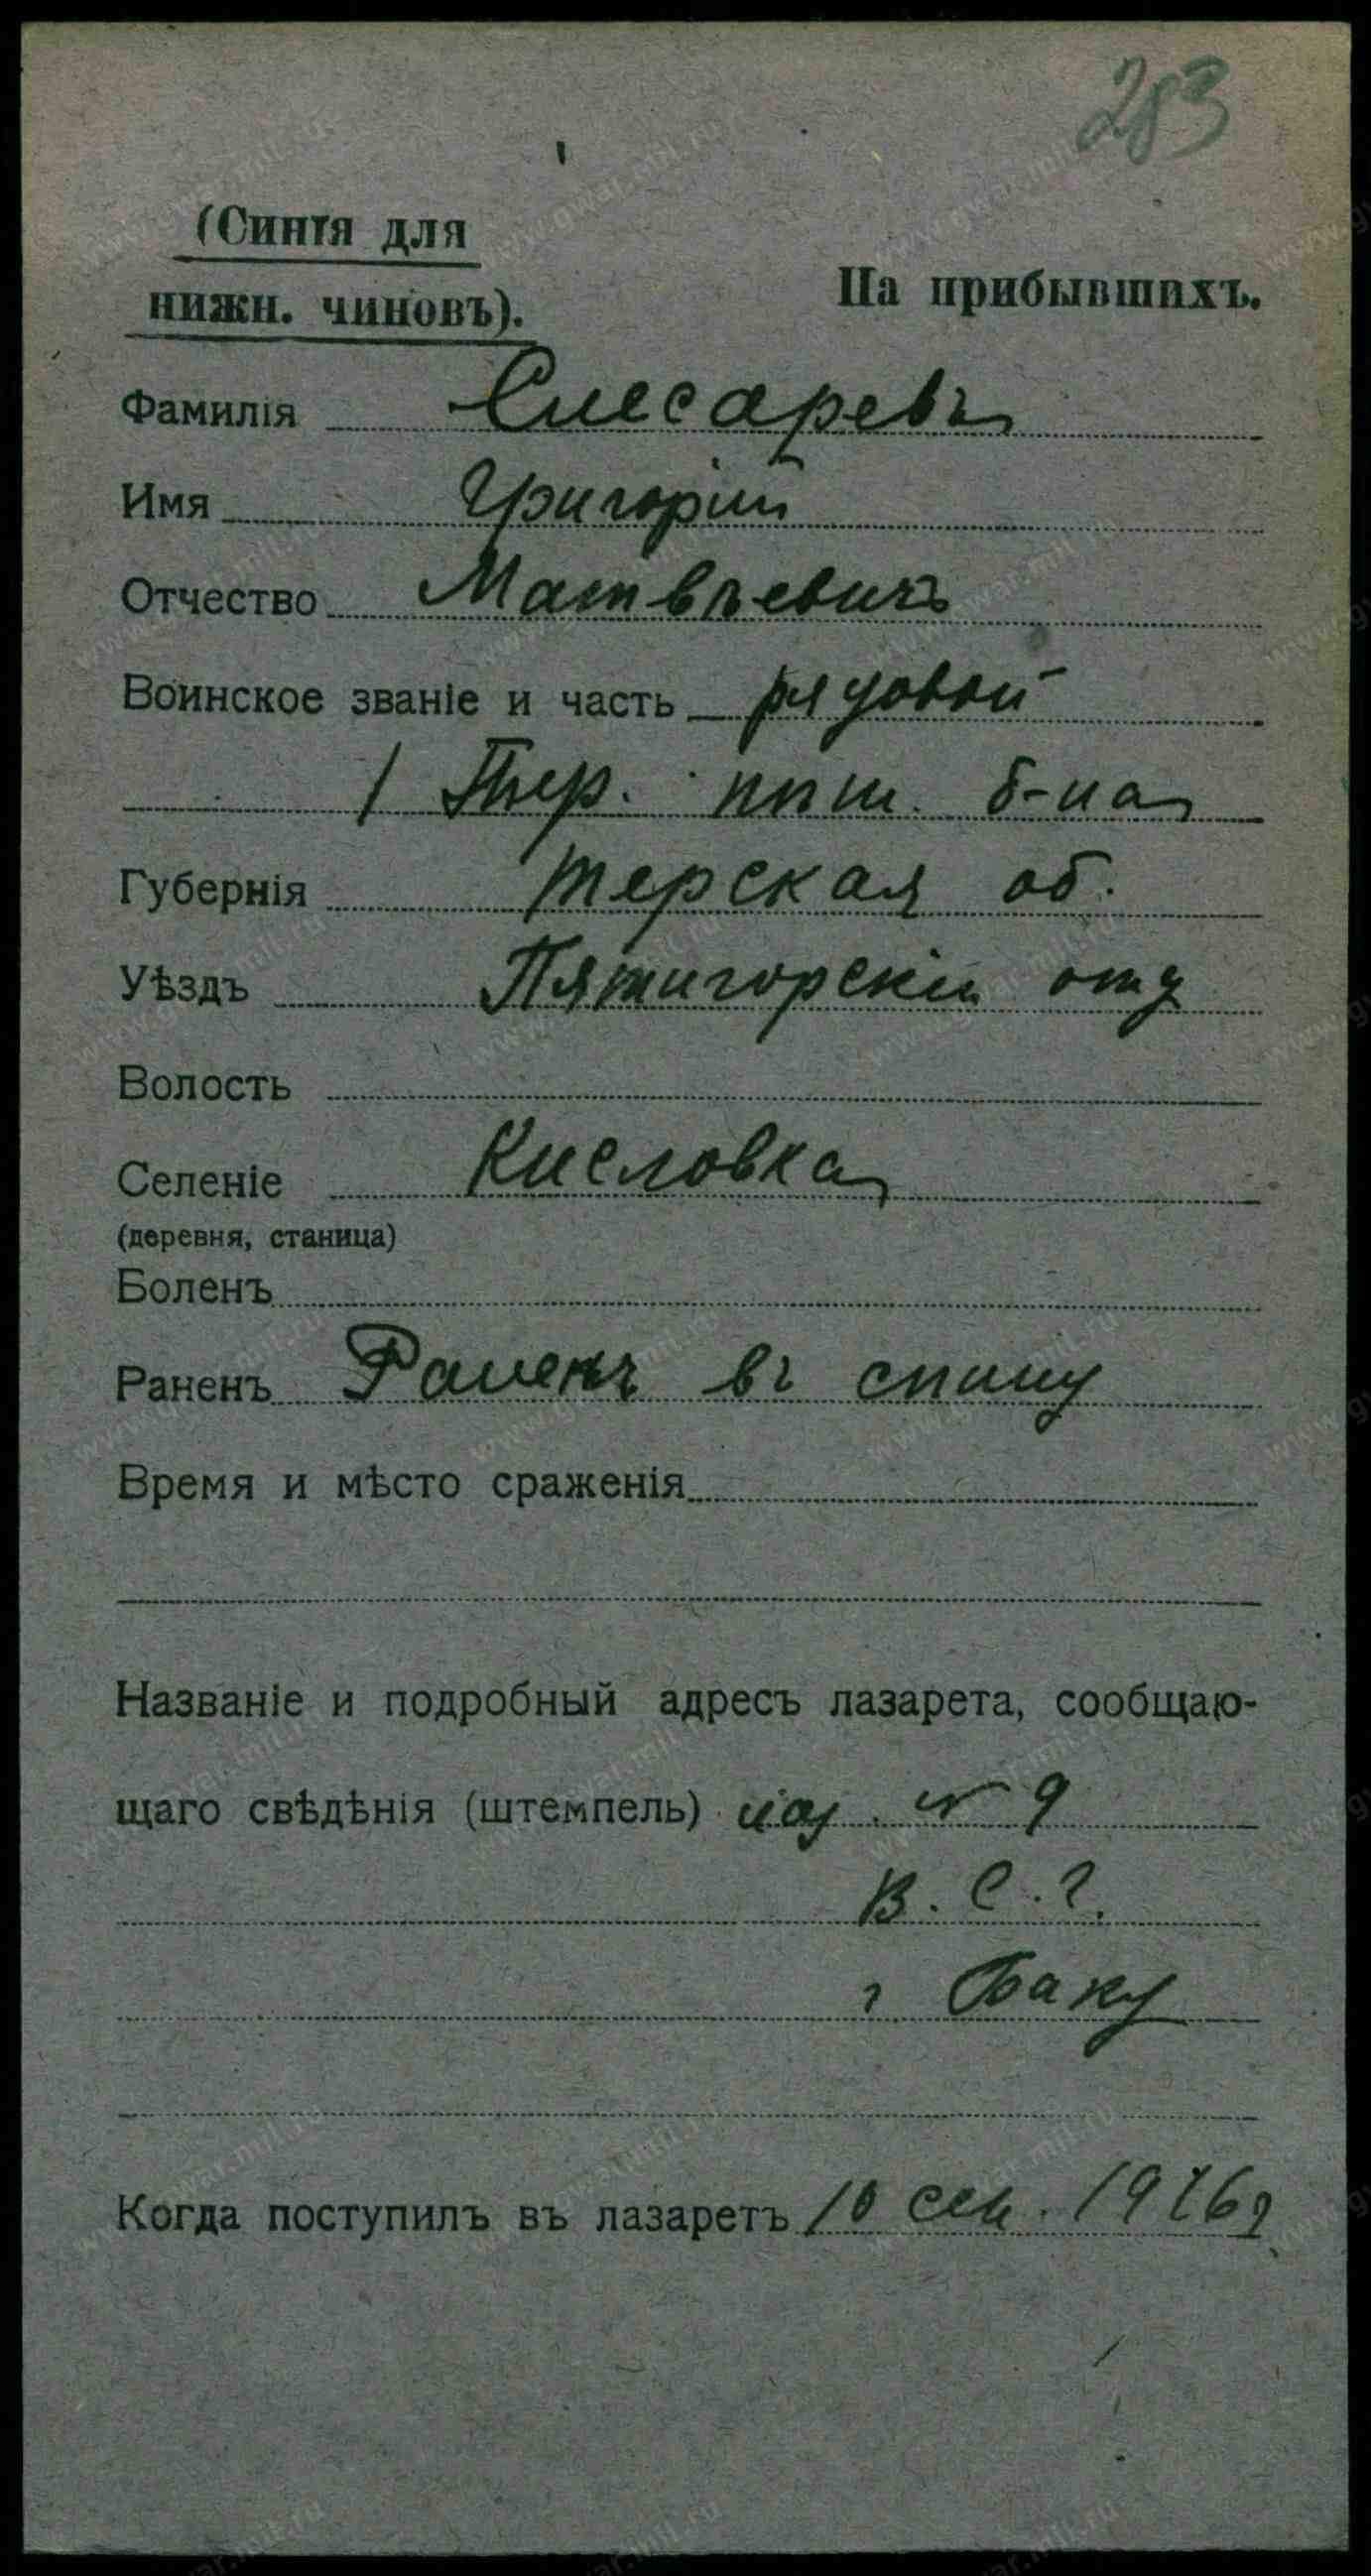 283
(Синія для
нижн. чиновъ).
На прибывшихъ.
Фамилія Слесаревъ
Имя Григорій
Отчество Матвѣевичъ
Воинское званіе и часть рядовой
1 Тер. пѣш. б-на
Губернія Терская об.
Уѣздъ Пятигорскій отд
Волость
Селеніе Кисловка
(деревня, станица)
Боленъ
Раненъ Раненъ въ спину
Время и мѣсто сраженія
Названіе и подробный адресъ лазарета, сообщаю-
щаго свѣдѣнія (штемпель) лаз. № 9
В. С. Г.
г Баку
Когда поступилъ въ лазаретъ 10 сен. 1916г
www.gwar.mil.ru